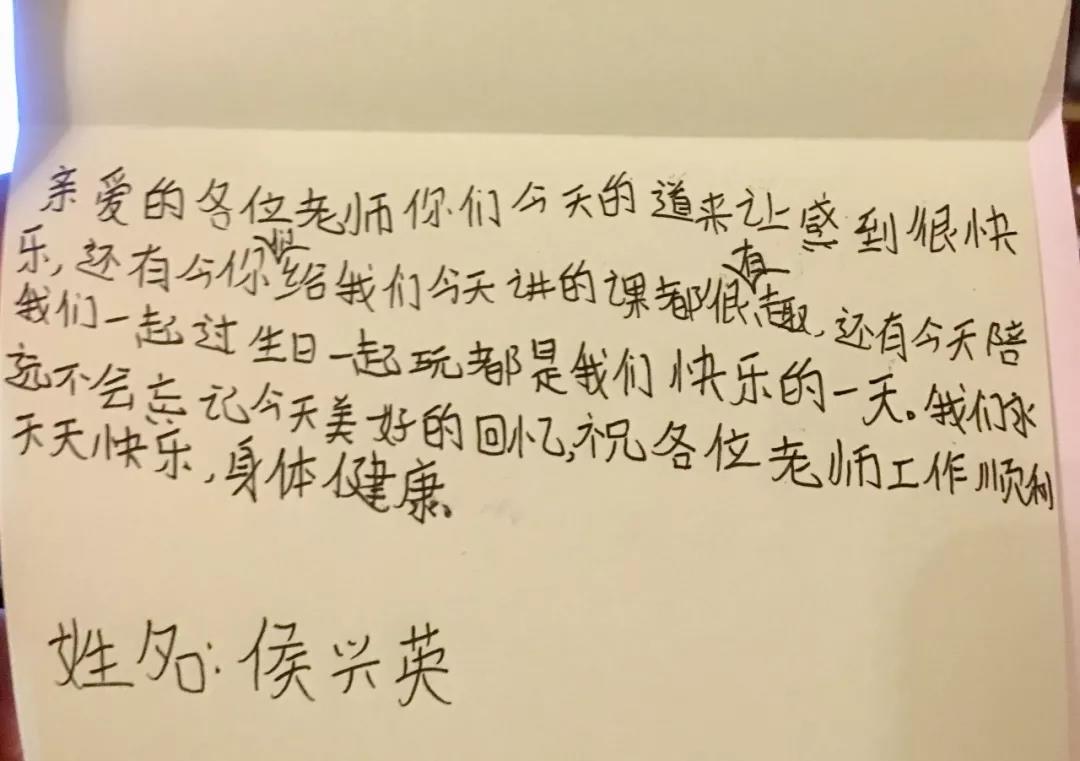 亲爱的各位老师你们今天的道来让感到很快
乐,还有今你们给我们今天讲的课都很有趣,还有今天陪
我们一起过生日一起玩都是我们快乐的一天。我们永
远不会忘记今天美好的回忆,祝各位老师工作顺利
天天快乐,身体健康。
姓名:侯兴英